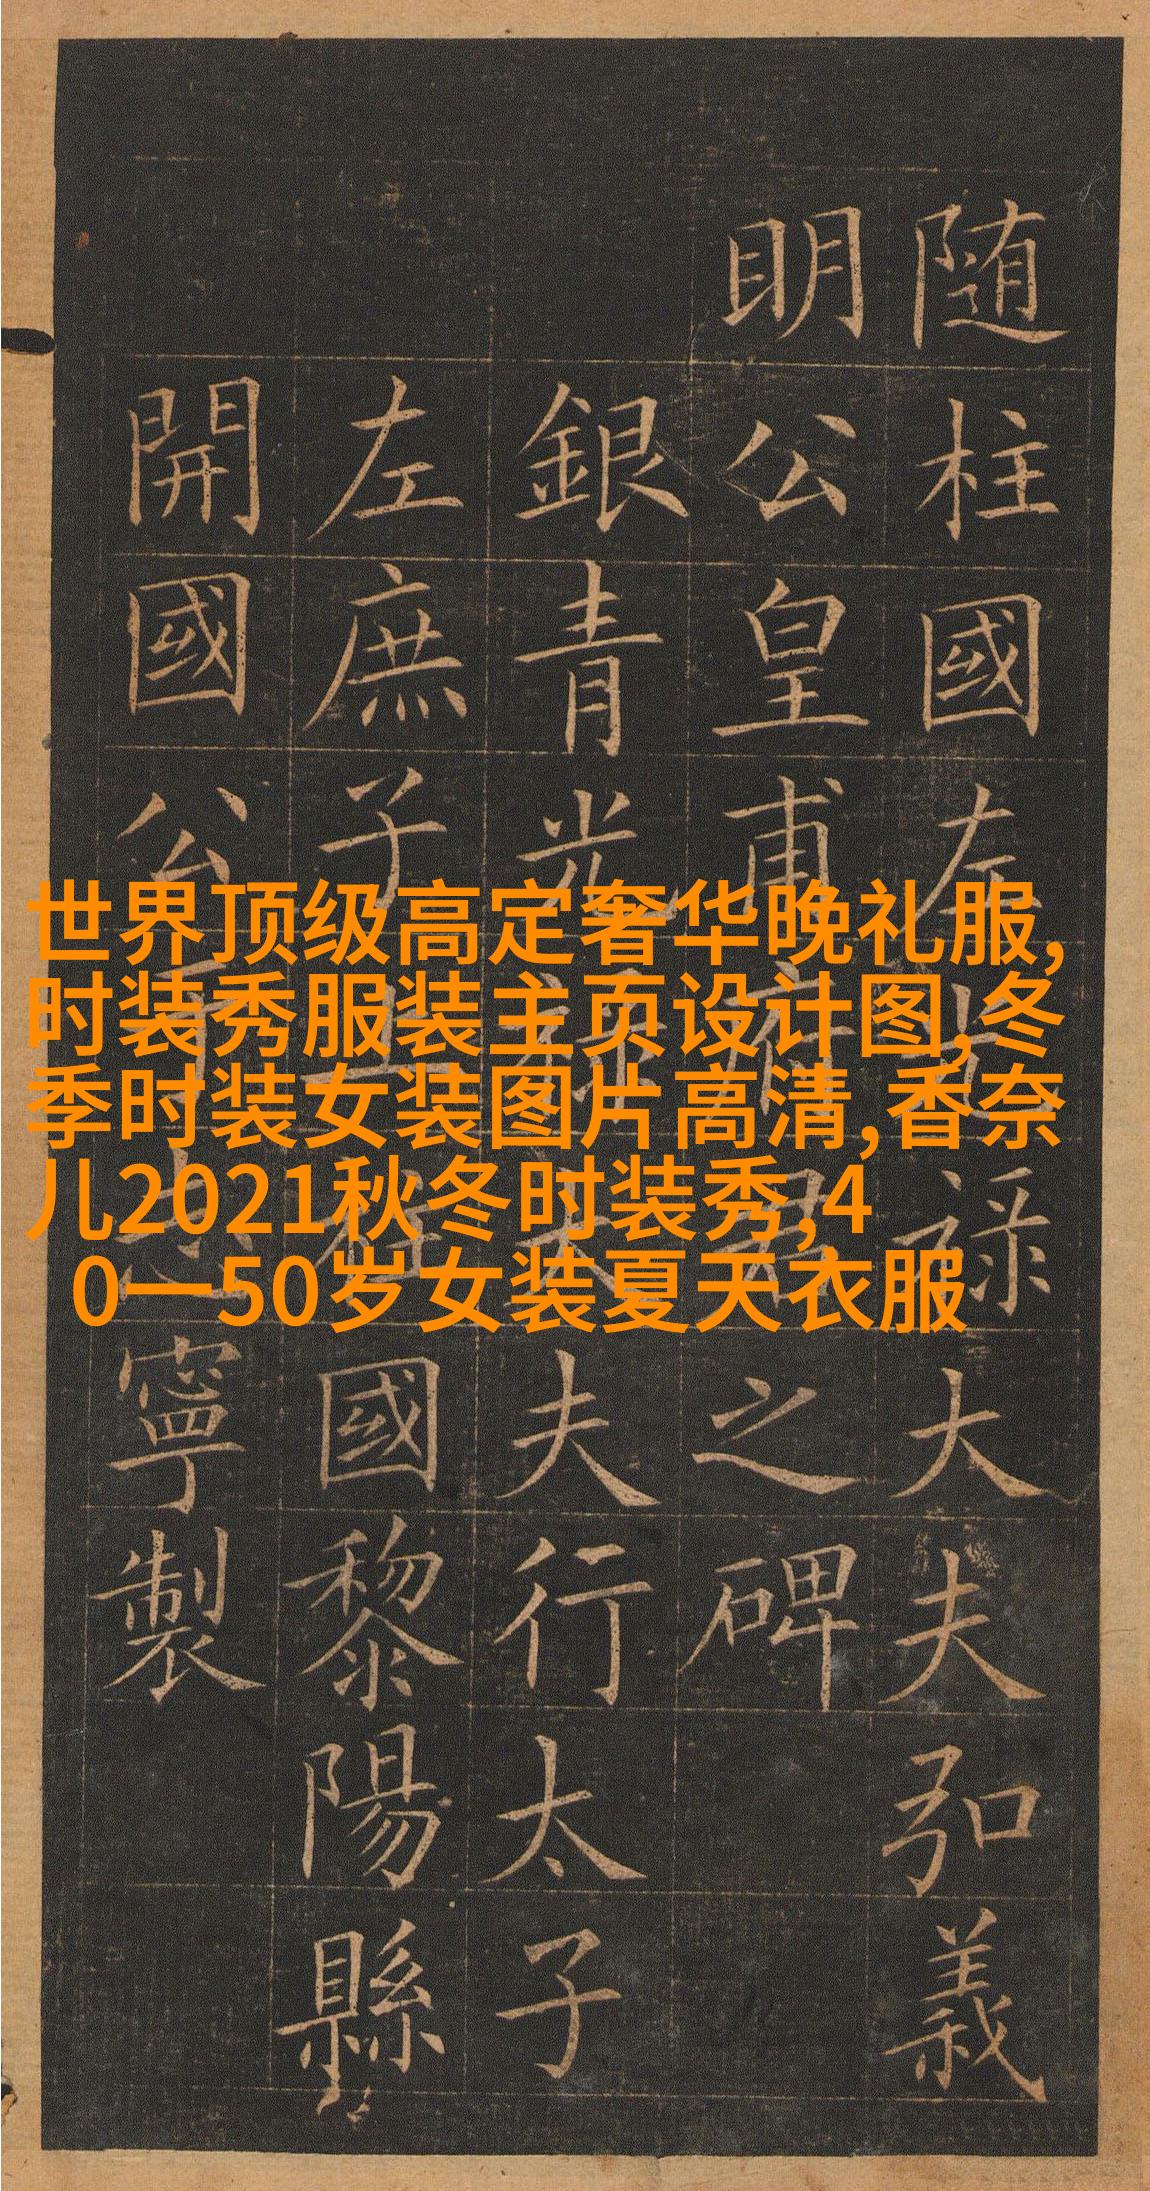 随柱國左光祿大夫弘義
明公皇甫府君之碑
銀青光祿大夫行太子
左庶子上柱國黎陽縣
開國公于志寧製
世界顶级高定奢华晚礼服,
时装秀服装主页设计图,冬
季时装女装图片高清,香奈
儿2021秋冬时装秀,4
0—50岁女装夏天衣服